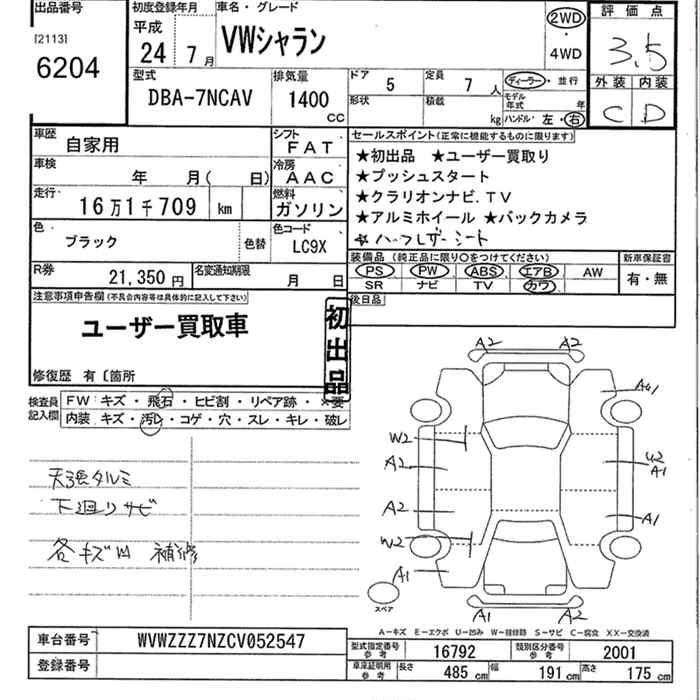 出品番号
[2113]
6204
初度登録年月
平成
24 7 月
車名・グレード
VWシャラン
2WD
・
4WD
評価点
3.5
外装 内装
C D
型式
DBA-7NCAV
排気量
1400
CC
ドア 5
定員 7 人
形状
積載 kg
ディーラー・並行
モデル年式 年
ハンドル 左・右
車歴 自家用
シフト FAT
車検 年 月( 日)
冷房 AAC
走行 16万1千709 km
燃料 ガソリン
色 ブラック
色替
色コード LC9X
R券 21,350 円
名変通知期限 月 日
セールスポイント(正常に機能するものに限ります)
★初出品 ★ユーザー買取り
★プッシュスタート
★クラリオンナビ.TV
★アルミホイール ★バックカメラ
☆ハーフレザーシート
装備品 (純正品に限り○をつけてください)
新車保証書
PS PW ABS エアB AW
SR ナビ TV カワ
有・無
後日品
注意事項申告欄(不具合内容等は具体的に記入して下さい)
ユーザー買取車
初出品
修復歴 有〔箇所
検査員記入欄
FW キズ・飛石・ヒビ割・リペア跡・×要
内装 キズ・汚れ・コゲ・穴・スレ・キレ・破レ
天張タルミ
下廻りサビ
各キズ凹 補修
A2 A2
A1
W2
A2
A1
A2
A1
W2
A1
スペア
A1 A2
A-キズ E-エクボ U-凹み W-補修跡 S-サビ C-腐食 XX-交換済
車台番号 WVWZZZ7NZCV052547
登録番号
型式指定番号参考 16792
類別区分番号参考 2001
車庫証明用参考
長さ 485 cm
幅 191 cm
高さ 175 cm